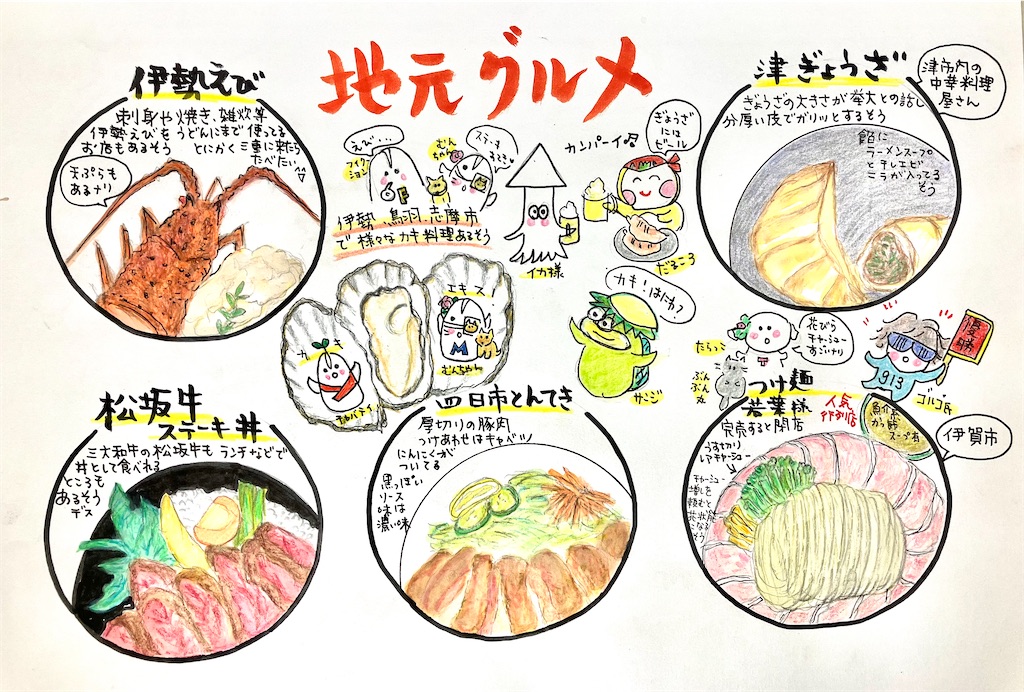 地元グルメ
伊勢えび
刺身や焼き、雑炊等
伊勢えびをうどんにまで使ってる
お店もあるそう とにかく三重に来たら
たべたい
天ぷらも
あるナリ
えび…
むん
ちゃん
ステーキ
伊勢、鳥羽、志摩市
で様々なカキ料理あるそう
カンパーイ♪
ぎょうざ
には
ビール
イカ様
だるころ
津ぎょうざ
津市内の
中華料理
屋さん
ぎょうざの大きさが拳大との話し
分厚い皮でガリッとするそう
餡に
ラーメンスープ
ニラが入ってる
そう
カキ
エキス!
M
むんちゃん
カキ!はにわ?
たらっこ
ぶん
ぶん
花びら
チャーシュー
すごいナリ
優勝
913
ゴルゴ氏
松坂牛
ステーキ丼
三大和牛の松坂牛も ランチなどで
丼として食べれる
ところも
あるそう
デス
四日市とんてき
厚切りの豚肉
つけあわせはキャベツ
にんにくが
ついてる
黒っぽい
ソース
味は
濃い味
つけ麺
若葉様
人気
完売すると閉店
魚介系
スープ有
伊賀市
うすぎり
レアチャーシュー
チャーシュー
増しを
頼むと
になる
そう